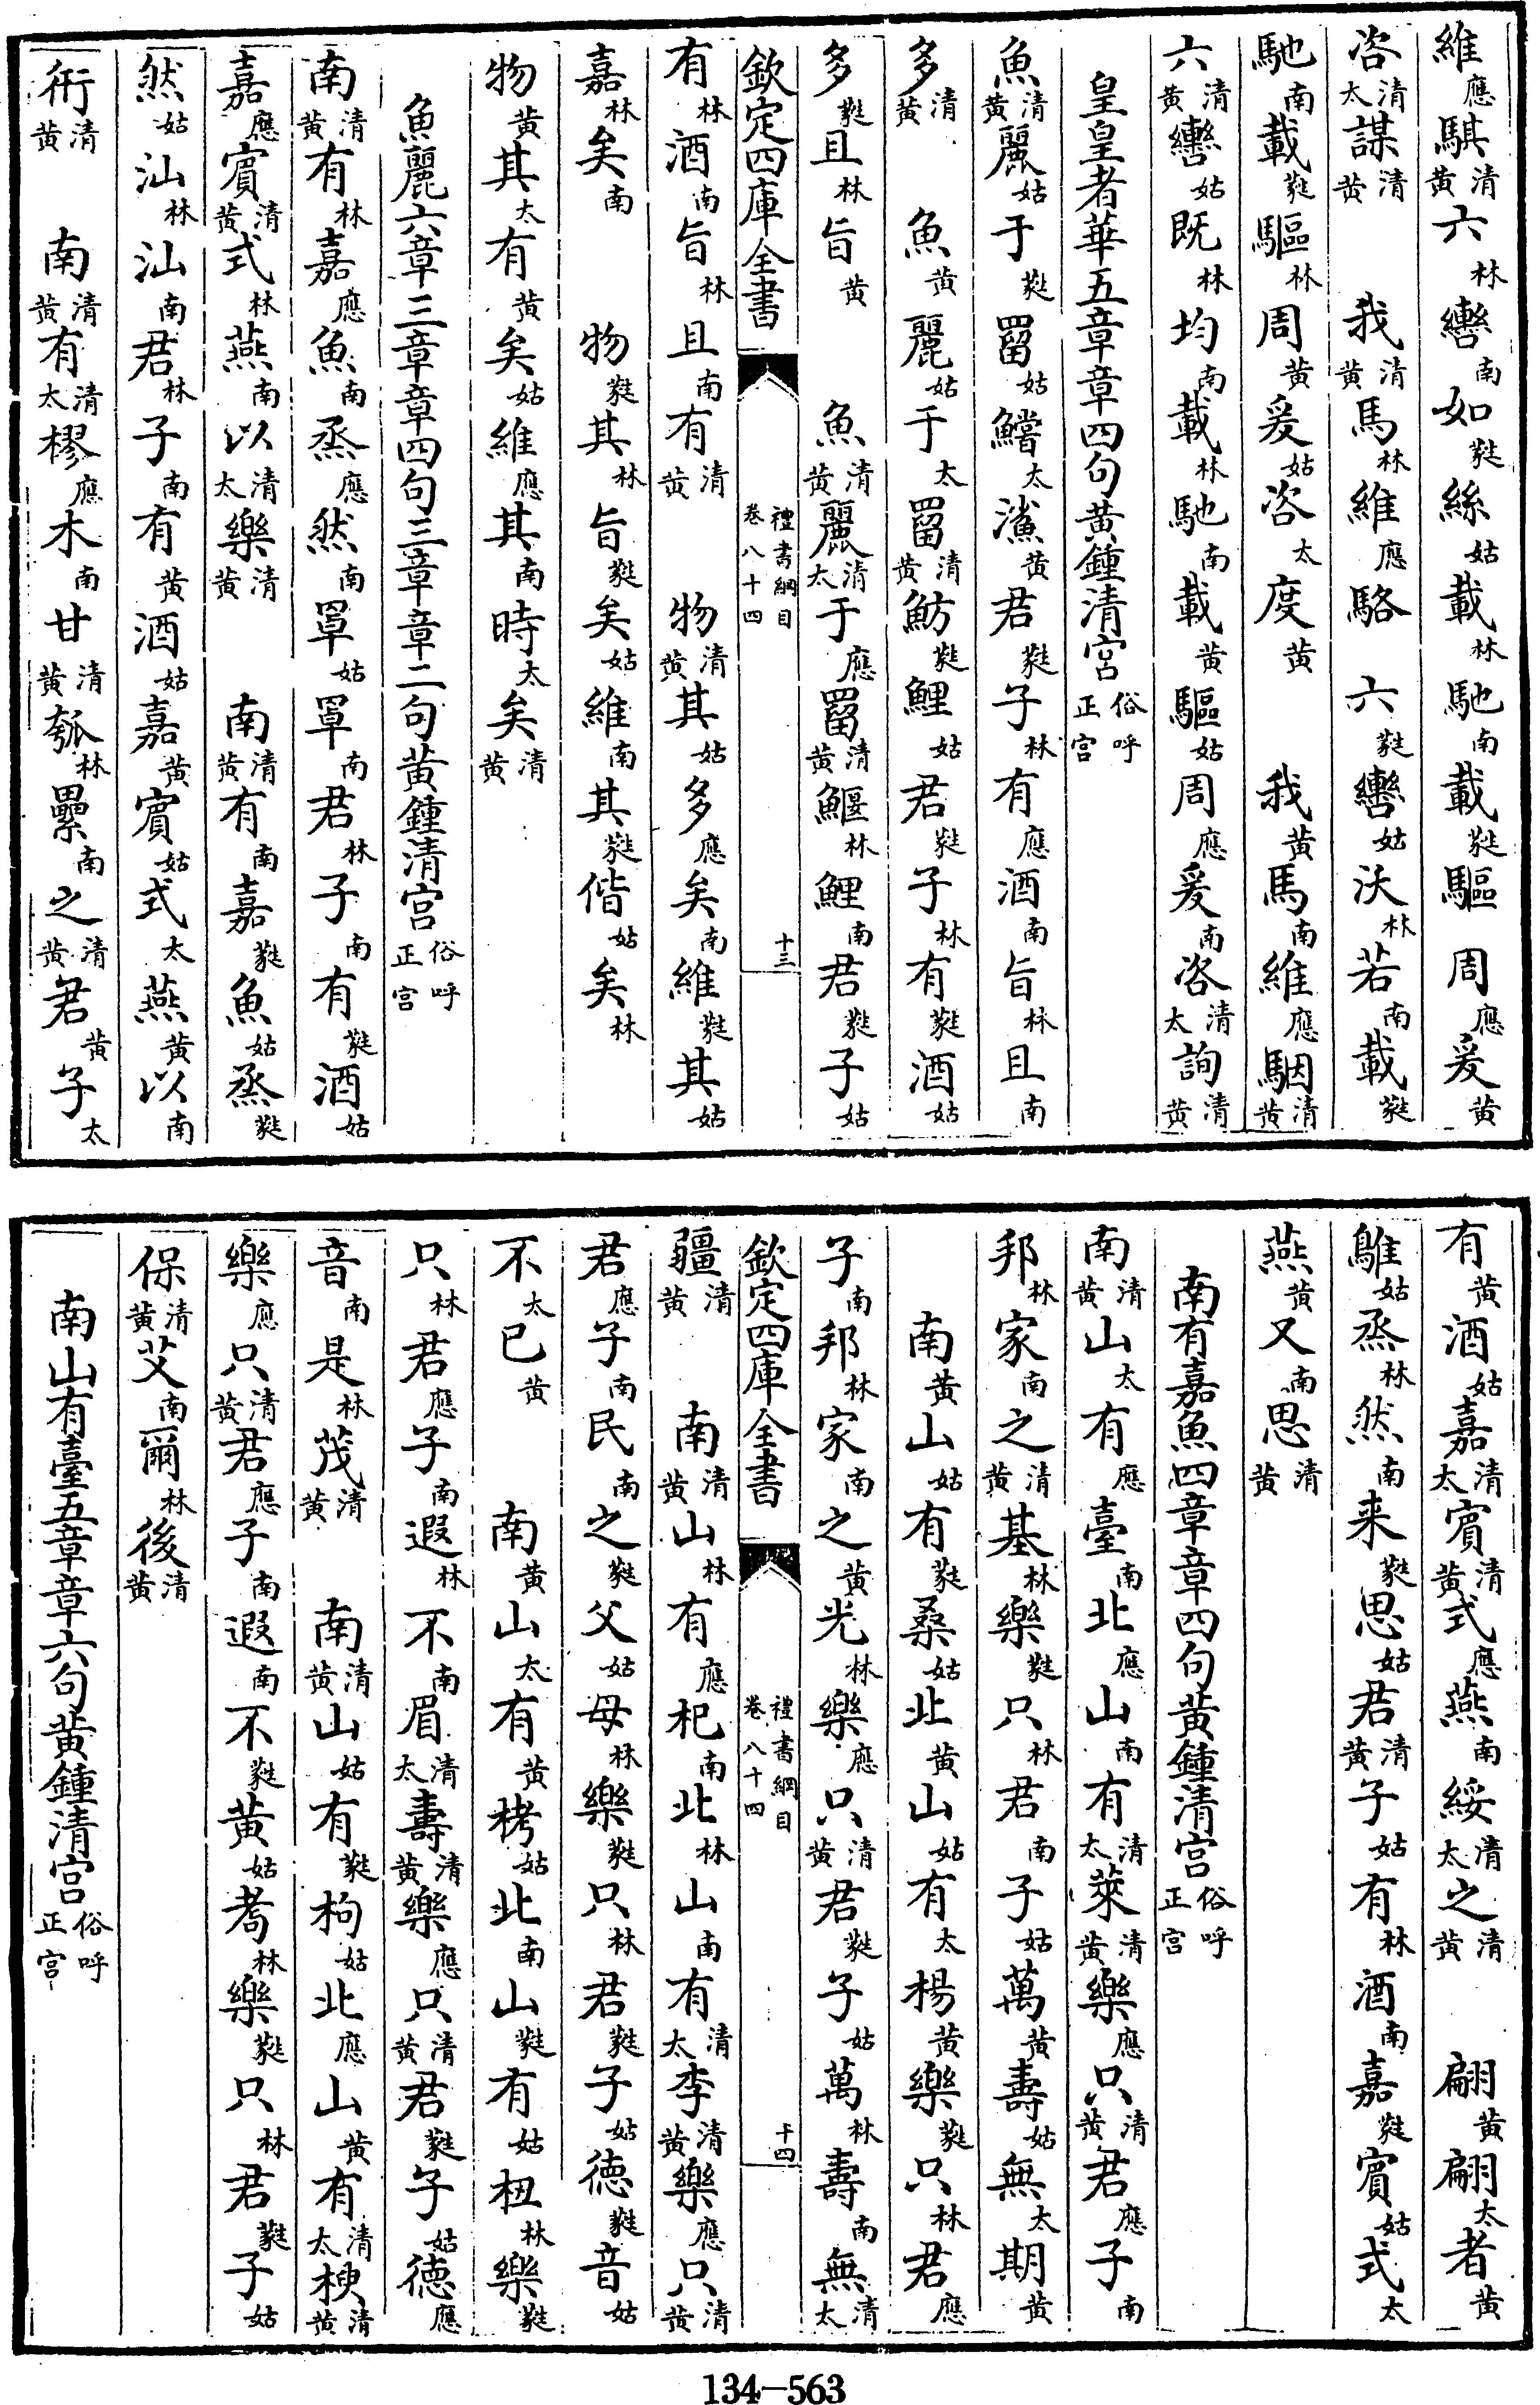 維應騏清黄六林轡南如蕤絲姑載林馳南載蕤驅　周應爰黄
咨清太謀清黄　我清黄馬林維應駱　六蕤轡姑沃林若南載蕤
馳南載蕤驅林周黄爰姑咨太度黄　我黄馬南維應駰清黄
六清黄轡姑既林均南載林馳南載黄驅姑周應爰南咨清太詢清黄
皇皇者華五章章四句黄鍾清宫俗呼正宫
魚清黄麗姑于蕤罶姑鱨太鯊黄君蕤子林有應酒南旨林且南
多清黄　魚黄麗姑于太罶清黄魴蕤鯉姑君蕤子林有蕤酒姑
多蕤且林旨黄　魚清黄麗清太于應罶清黄鰋林鯉南君蕤子姑
欽定四庫全書　禮書綱目卷八十四　十三
有林酒南旨林且南有清黄　物清黄其姑多應矣南維蕤其姑
嘉林矣南　物蕤其林旨蕤矣姑維南其蕤偕姑矣林
物黄其太有黄矣姑維應其南時太矣清黄
魚麗六章三章章四句三章章二句黄鍾清宫俗呼正宫
南清黄有林嘉應魚南烝應然南罩姑罩南君林子南有蕤酒姑
嘉應賓清黄式林燕南以清太樂清黄　南清黄有南嘉蕤魚姑烝蕤
然姑汕林汕南君林子南有黄酒姑嘉黄賓姑式太燕黄以南
衎清黄　南清黄有清太樛應木南甘清黄瓠林纍南之清黄君黄子太
有黄酒姑嘉清太賓清黄式應燕南綏清太之清黄　翩黄翩太者黄
鵻姑烝林然南来蕤思姑君清黄子姑有林酒南嘉蕤賓姑式太
燕黄又南思清黄
南有嘉魚四章章四句黄鍾清宫俗呼正宫
南清黄山太有應臺南北應山南有清太萊清黄樂應只清黄君應子南
邦林家南之清黄基林樂蕤只林君南子姑萬黄壽姑無太期黄
南黄山姑有蕤桑姑北黄山姑有太楊黄樂蕤只林君應
子南邦林家南之黄光林樂應只清黄君蕤子姑萬林壽南無清太
欽定四庫全書　禮書綱目卷八十四　十四
疆清黄　南清黄山林有應杞南北林山南有清太李清黄樂應只清黄
君應子南民南之蕤父姑母林樂蕤只林君蕤子姑德蕤音姑
不太已黄　南黄山太有黄栲姑北南山蕤有姑杻林樂蕤
只林君應子南遐林不南眉清太壽清黄樂應只清黄君蕤子姑德應
音南是林茂清黄　南清黄山姑有蕤枸姑北應山黄有清太楰清黄
樂應只清黄君應子南遐南不蕤黄姑耉林樂蕤只林君蕤子姑
保清黄艾南爾林後清黄
南山有臺五章章六句黄鍾清宫俗呼正宫
134-563